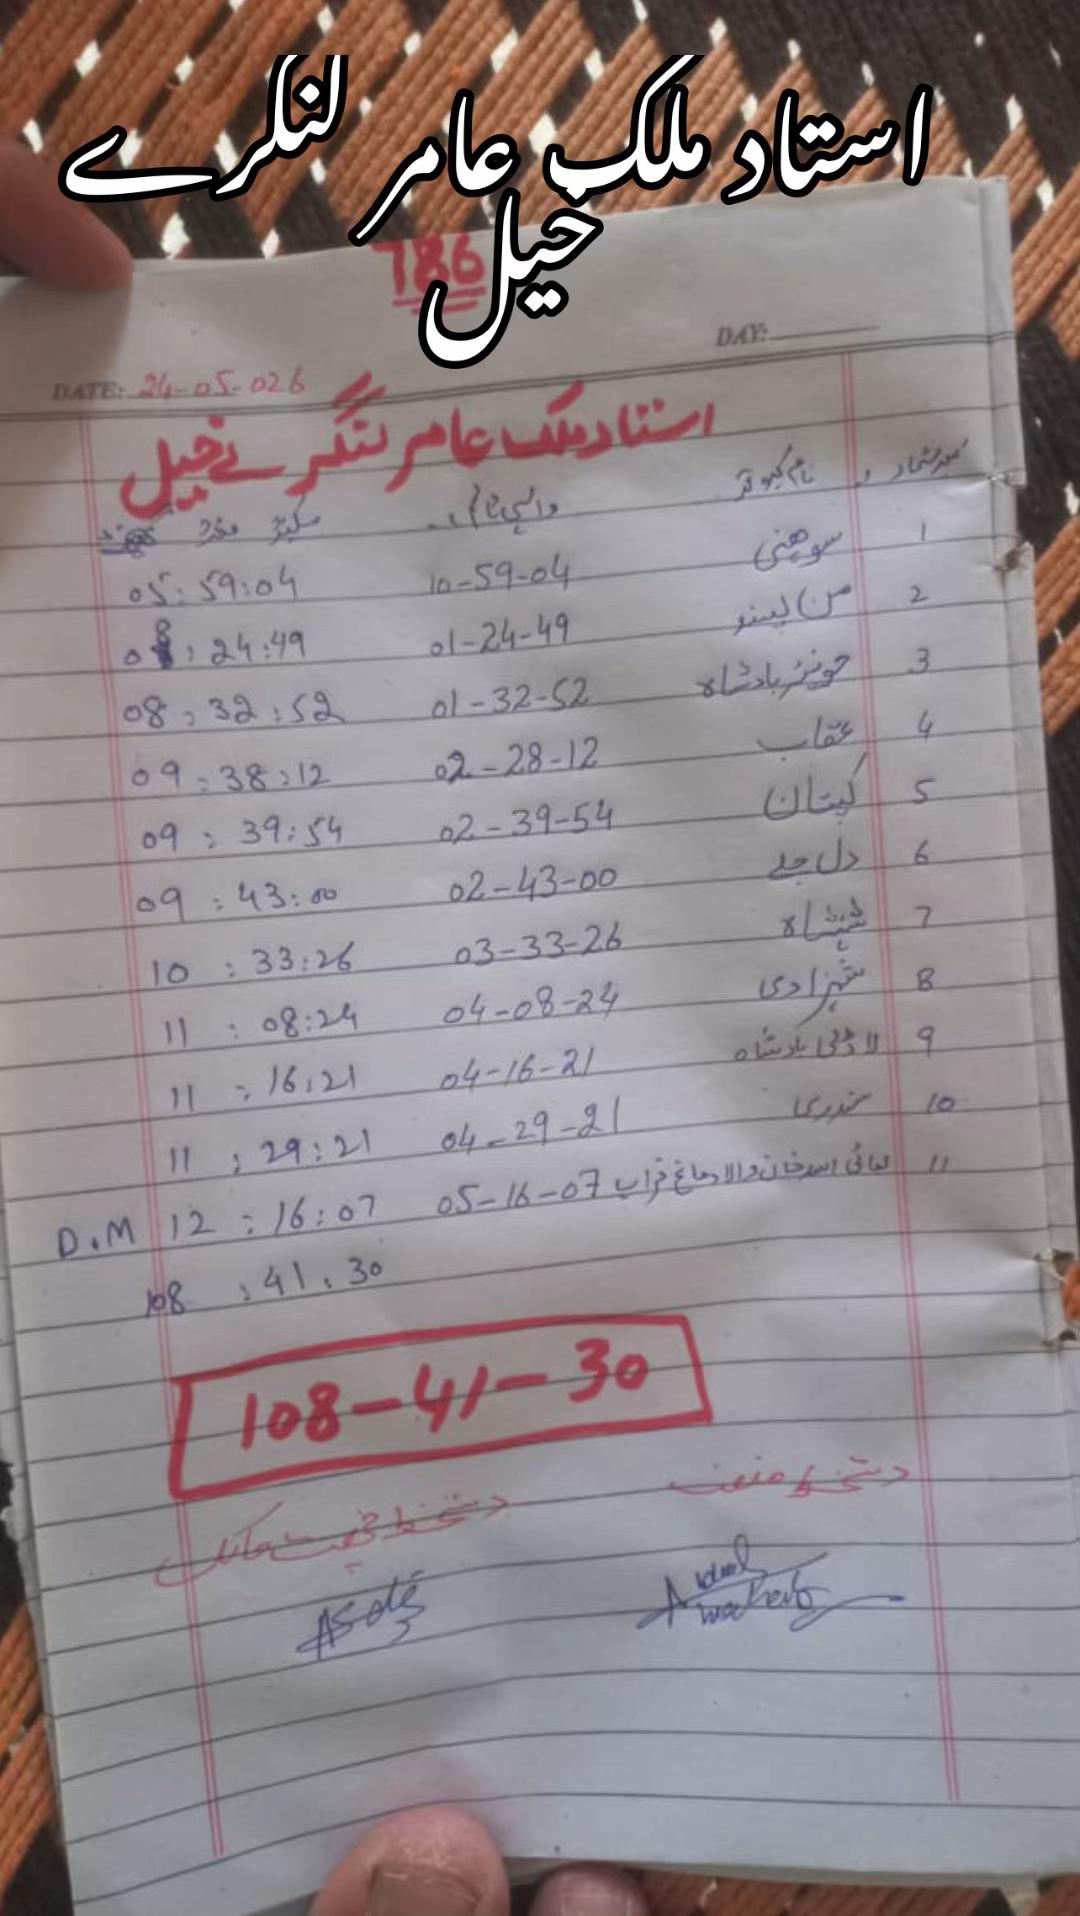 استاد ملک عامر لنگرے
خیل
786
DAY:
DATE: 24-05-026
استاد ملک عامر لنگرے خیل
نمبر شمار نام کبوتر واپسی ٹائم سکینڈ منٹ
1 سوھنی 10-59-04 05:59:04
2 من پسند 01-24-49 08:24:49
3 جونئر بادشاہ 01-32-52 08:32:52
4 عقاب 02-28-12 09:38:12
5 کپتان 02-39-54 09:39:54
6 دل جلے 02-43-00 09:43:00
7 03-33-26 10:33:26
8 شہزادی 04-08-24 11:08:24
9 لاڈلی بادشاہ 04-16-21 11:16:21
10 سندری 04-29-21 11:29:21
11 بھائی اسد خان والا دماغ خراب 05-16-07 12:16:07 D.M
108:41:30
108-41-30
دستخط منصف
دستخط چھت مالک
Abdul Waheed